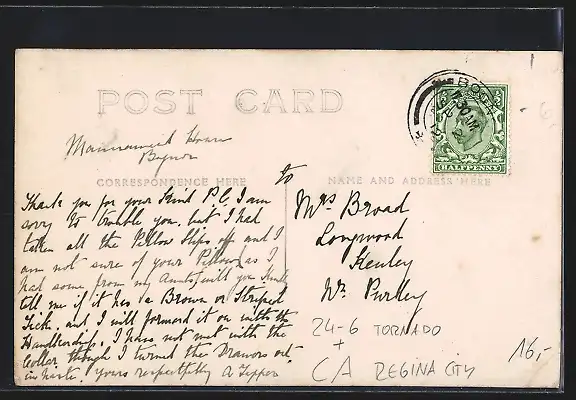 POST CARD
House
Bognor
CORRESPONDENCE HERE
NAME AND ADDRESS HERE
to
Thank you for your kind P.C. I am
sorry to trouble you. but I had
taken all the Pillow Slips off and I
am not sure of your Pillow as I
had some from my Aunts, will you kindly
tell me if it has a Brown or Striped
Tick. and I will forward it on with the
Handkerchifs. I have not met with the
Coller though I turned the Drawers out.
in haste. yours respectfully A Tipper
Mrs Broad
Longwood
Kenley
Nr. Purley
24-6 TORNADO
+
CA REGINA CITY
16,-
6
BOG
7.30 AM
HALFPENNY